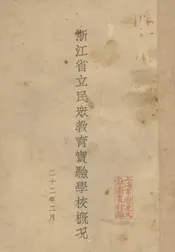 浙江省立民眾教育實驗學校概况
二十二年二月